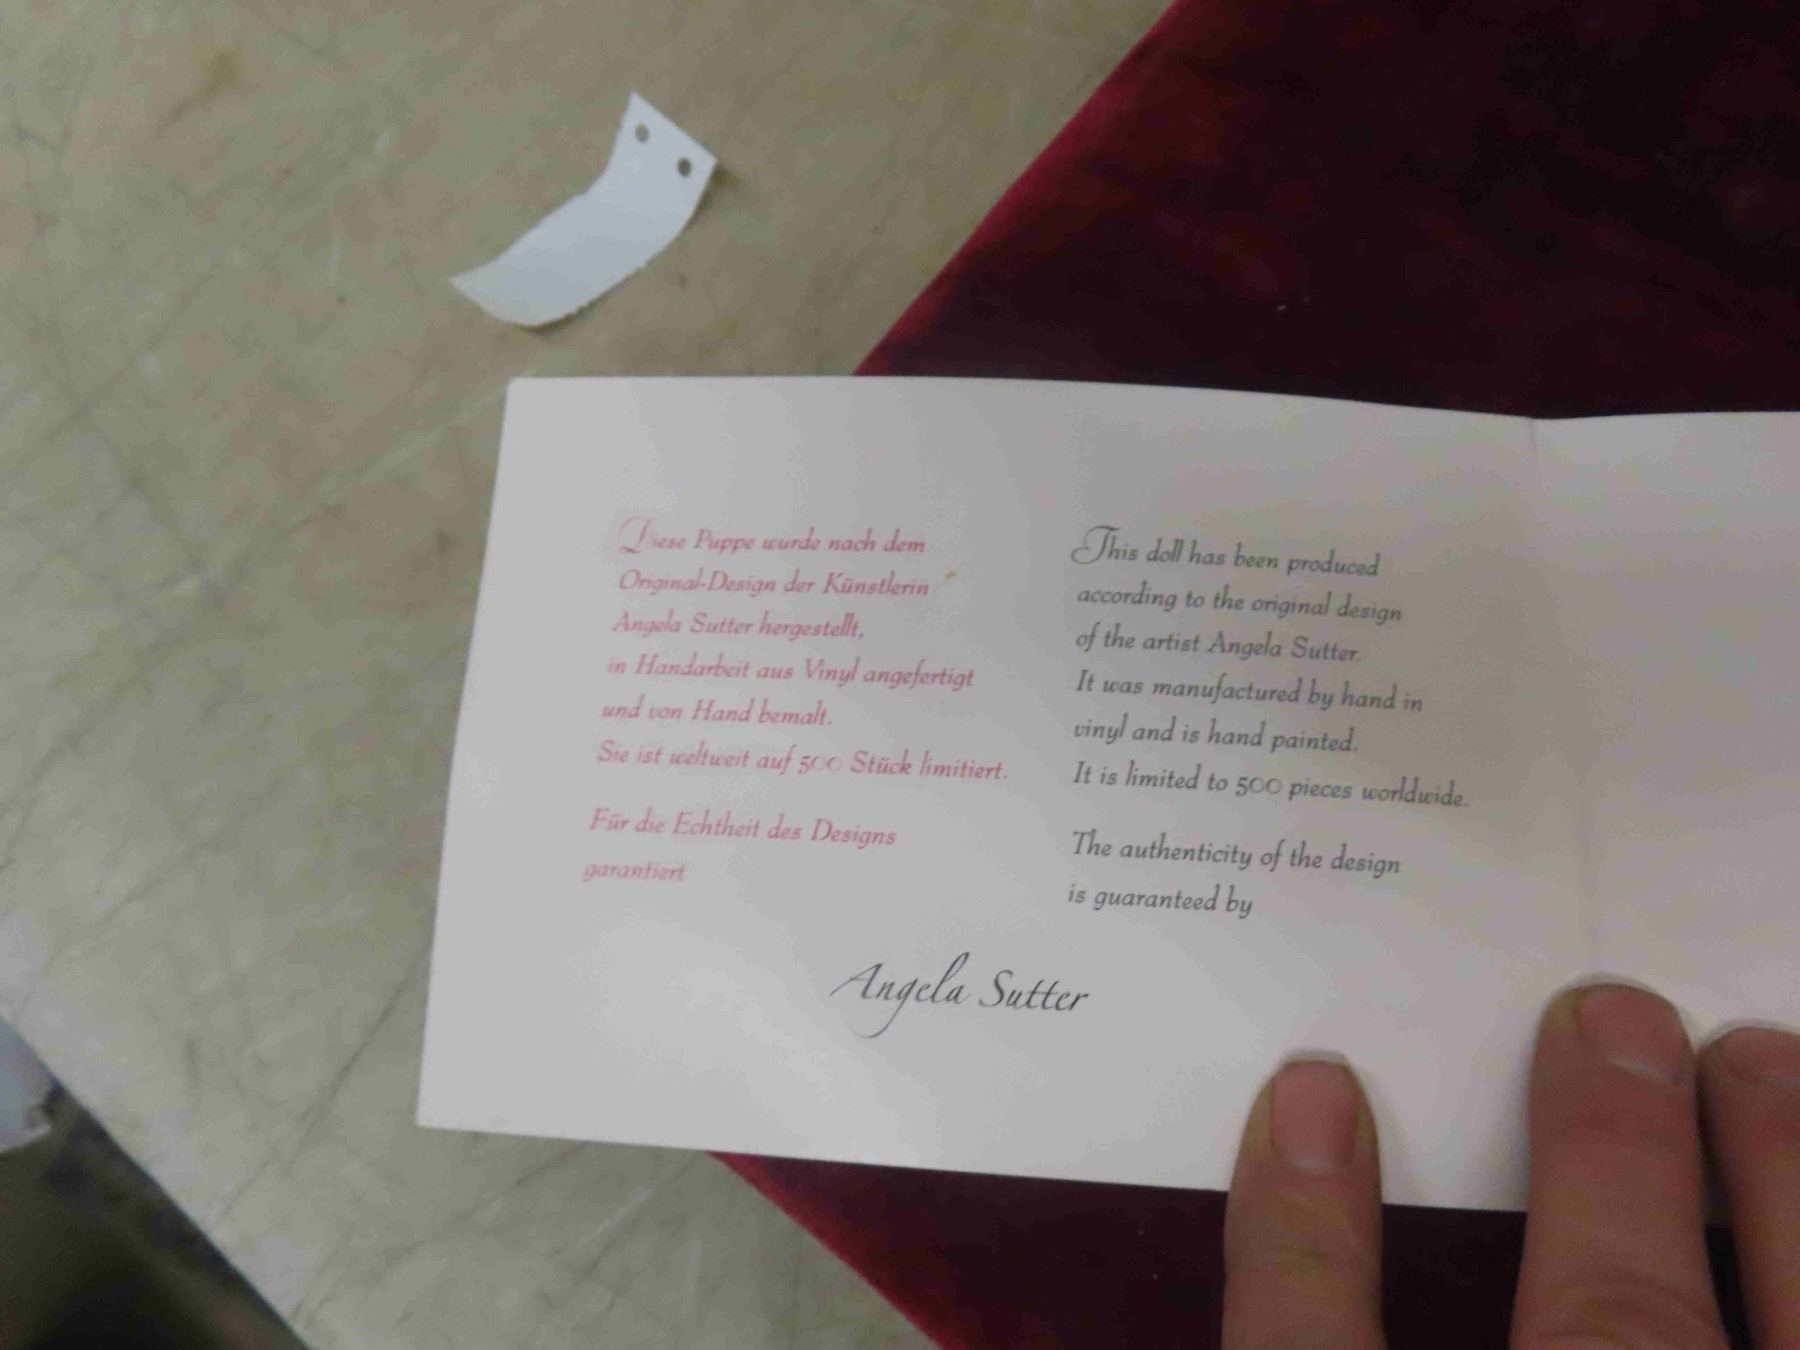 Diese Puppe wurde nach dem
Original-Design der Künstlerin
Angela Sutter hergestellt,
in Handarbeit aus Vinyl angefertigt
und von Hand bemalt.
Sie ist weltweit auf 500 Stück limitiert.
Für die Echtheit des Designs
garantiert
This doll has been produced
according to the original design
of the artist Angela Sutter.
It was manufactured by hand in
vinyl and is hand painted.
It is limited to 500 pieces worldwide.
The authenticity of the design
is guaranteed by
Angela Sutter